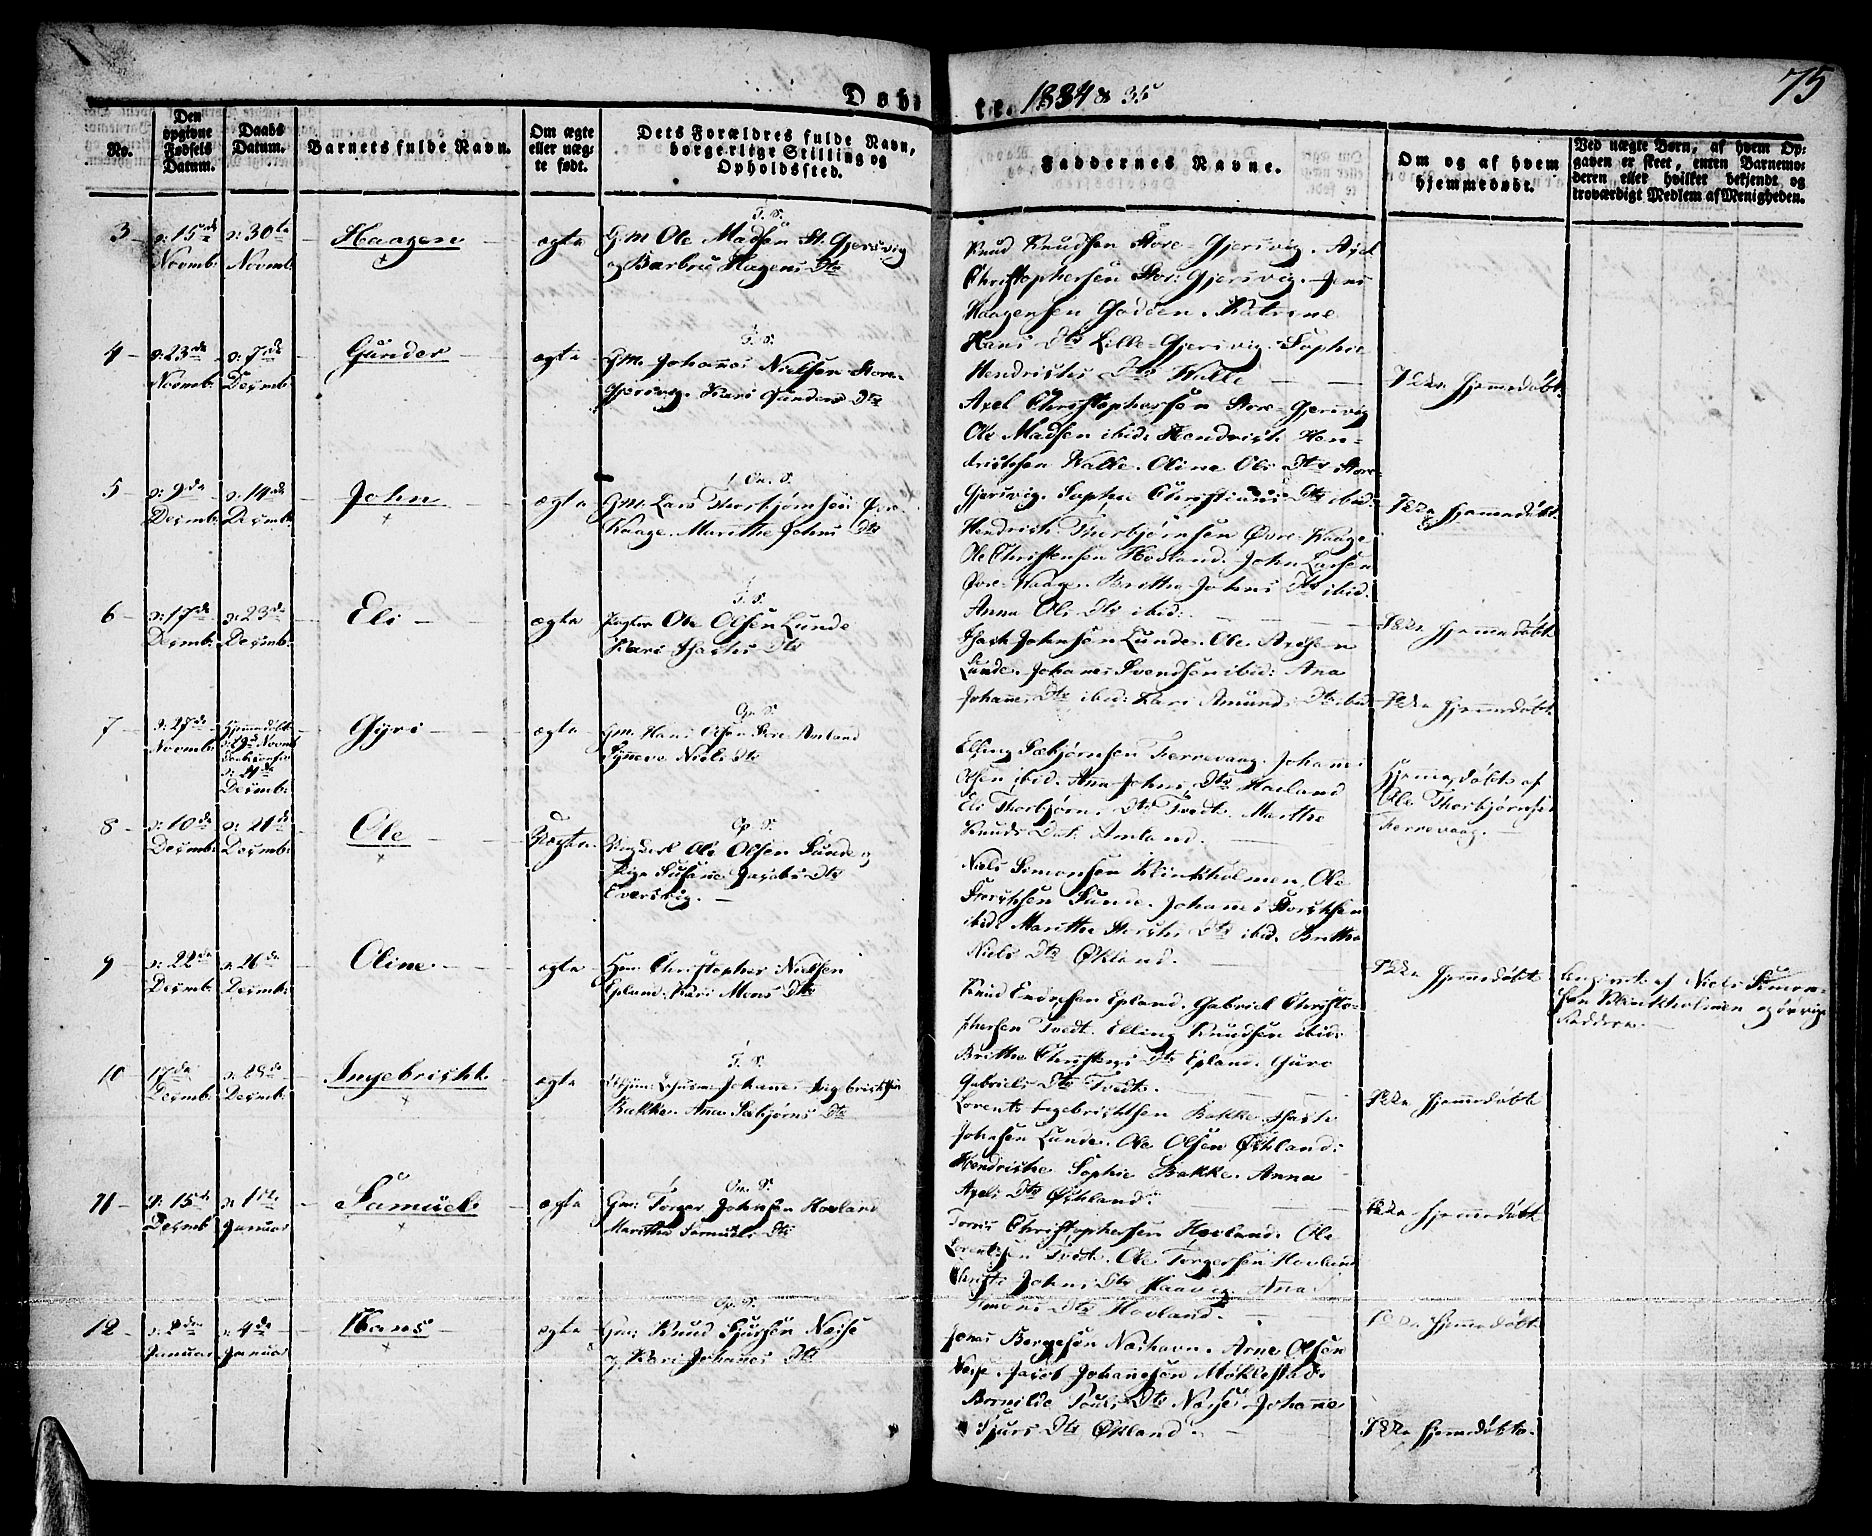 Døbte 1834 & 35
75
No.
Den opgivne Fødsels Datum.
Daabs Datum.
Barnets fulde Navn.
Om ægte eller uægte født.
Dets Forældres fulde Navn, borgerlige Stilling og Opholdssted.
Faddernes Navne.
Om og af hvem hjemmedøbt.
Ved uægte Børn, af hvem Opgaven er skeet, enten Barnemoderen eller hvilket bekjendt og troværdigt Medlem af Menigheden.
3 d: 15de Novmb: d: 30te Novmb: Haagen ægte
G.M. Ole Madsen St. Gjersvig
og Barbru Hagens Dtr
Knud Knudsen Store-Gjersvig. Axel
Christophersen Stor: Gjersvig. Jens
Haagensen Godøen. Katrine
Hans Dtr Lille-Gjersvig. Sophie
Hendrichs Dtr Walle
4 d: 23de Novmb: d: 7de Desmb: Gunder ægte
G.M. Johannes Nielsen Store-
Gjersvig. Kari Gunders Dtr
Axel Christophersen Store-Gjersvig
Ole Madsen ibid: Hendrich Hen-
drichsen Walle. Oline Ols Dtr Store
Gjersvig. Sophie Christians Dtr ibid:
Ikke hjemmedøbt.
5 d: 9de Desmb: d: 14de Desmb: John ægte
G.M. Lars Thorbjørnsen Øvre
Waage. Marithe Johns Dtr
Hendrich Thorbjørnsen Øvre-Waage
Ole Christensen Hovland. John Larsen
Øvre-Waage. Brithe Johns Dtr ibid.
Anna Ols Dtr ibid:
Ikke hjemmedøbt.
6 d: 17de Desmb: d: 23de Desmb: Eli ægte
Ole Olsen Lunde
Kari Dtr
Johnsen Lunde. Ole Axelsen
Lunde. Johanes Svendsen ibid: Ana
Johannes Dtr ibid: Kari Amunds Dtr ibid
Ikke hjemmedøbt
7 d: 27de Novmb: Hjemmedøbt d: 29de Novmb d: 21de Desmb: Gyri ægte
Gm. Hans Olsen Amland
Synneve Niels Dtr
Elling Sæbjørnsen Færrevaag. Johanes
Olsen ibid. Anna Johns Dtr Hovland
Eli Thorbjørns Dtr Tvedt. Marthe
Knuds Dat: Amland.
Hjemmedøbt af
Ole Thorbjørnsen
Færrevaag.
8 d: 10de Desmb: d: 21de Desmb: Ole Uægte
Ungkarl Ole Olsen Sunde og
Pige Susanne Jacobs Dtr
Eversvig.
Niels Simonsen Klinkholmen, Ole
Størksen Sunde. Johannes Størksen
ibid: Marithe Størks Dtr ibid. Brithe
Niels Dtr Økland.
Ikke hjemmedøbt
Angivet af Niels Simon-
sen Klinkholmen og øvrige
Faddere.
9 d: 22de Desmb: d: 26de Desmb: Oline ægte
Christopher Nielsen
Epland. Kari Mons Dtr
Knud Endresen Epland. Gabriel Christo-
phersen Tvedt. Elling Knudsen ibid:
Brithe Christens Dtr Epland. Guro
Gabriels Dtr Tvedt.
Ikke hjemmedøbt
10 17de Desmb: d: 28de Desmb: Ingebrickt ægte
Johanes Ingebrictsen
Bakke. Anna Sæbjørns Dtr
Lorents Ingebrichtsen Bakke.
Johnsen Lunde. Ole Olsen Økland:
Hendriche Sophie Bakke. Anna
Axels Dtr Økland.
Ikke hjemmedøbt
11 d: 15de Desmb d: 1ste Januar Samuel ægte
Gm: Torger Johnsen Hovland
Marithe Samuels Dtr
Tørris Christophersen Hovland. Ole
Lorentzen Tvedt. Ole Torgersen Hovland
Christi Johns Dtr Haavig. Ana
Simons Dtr Hovland.
Ikke hjemmedøbt
12 d: 2den Januar d: 4de Januar Hans ægte
Gm: Knud Sjursen Neise
og Kari Johanes Dtr
Jonas Bergesen Næshavn. Arne Olsen
Neise. Jacob Johanesen Møklestad.
Bornilde Dtr Neise. Johanne
Sjurs Dtr Økland.
Ikke hjemmedøbt.